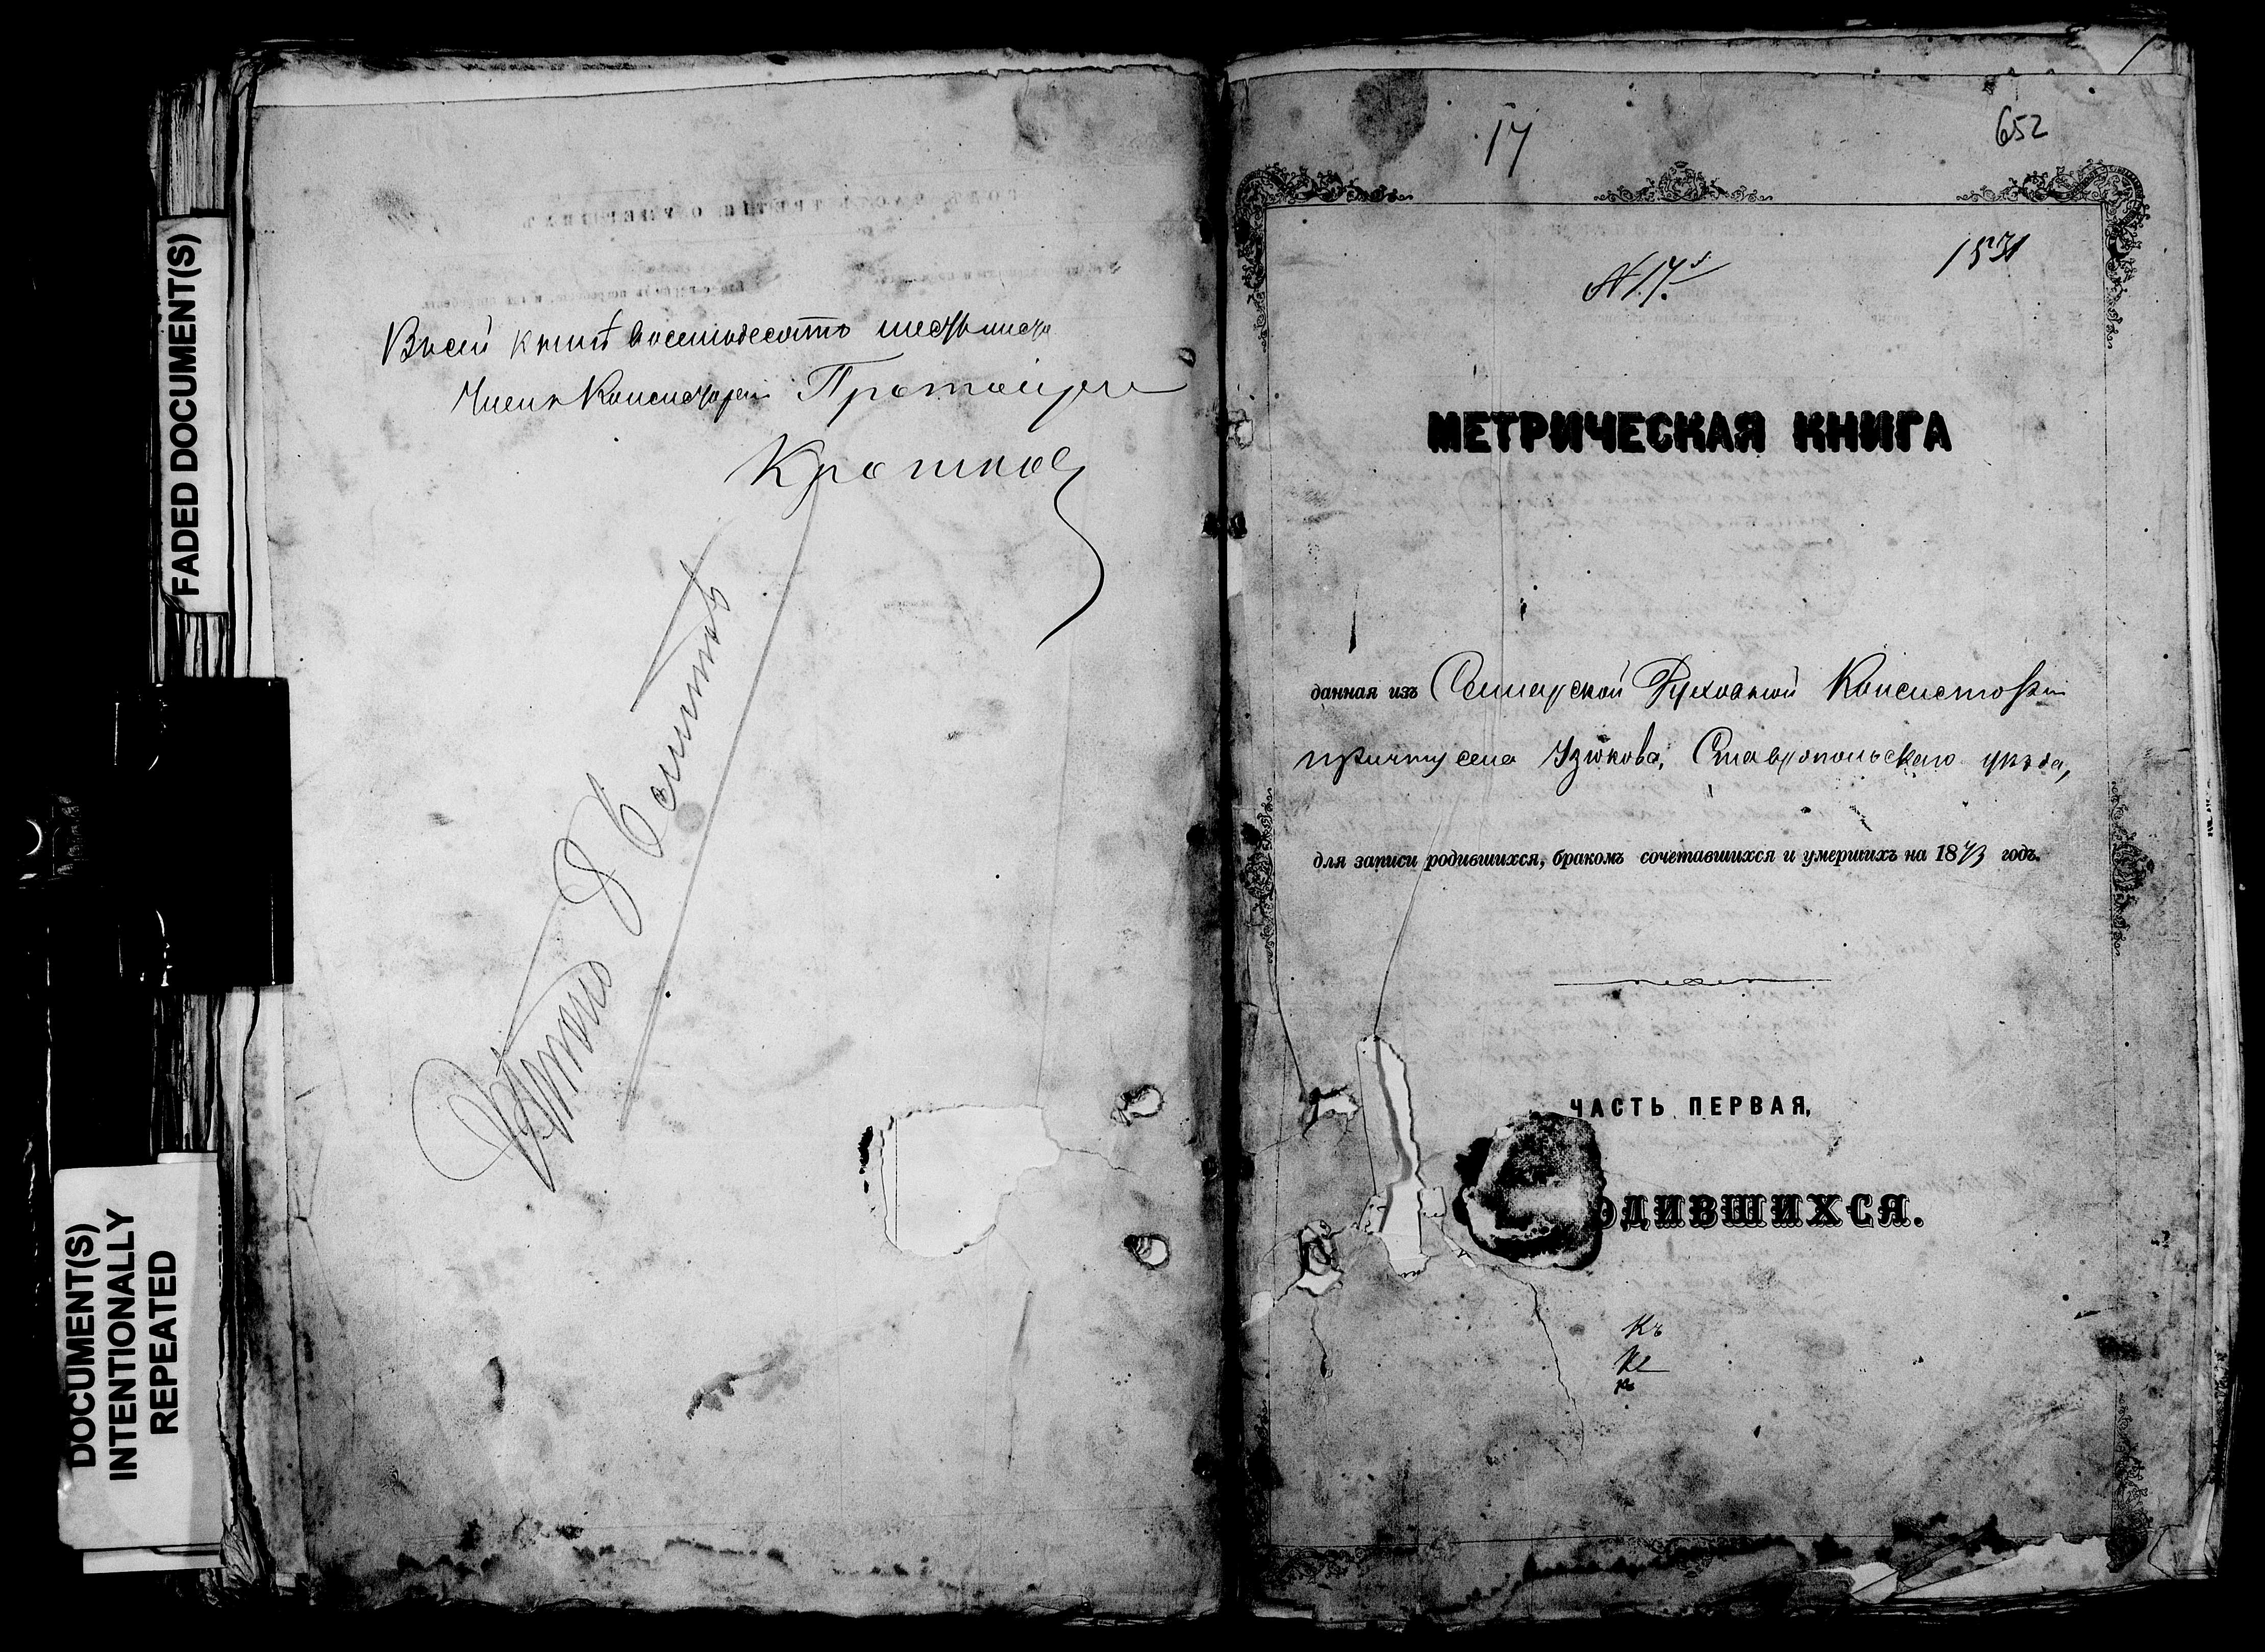 FADED DOCUMENT(S)
DOCUMENT(S)
INTENTIONALLY
REPEATED
Въ сей книгѣ восемьдесятъ шесть листо
Членъ Консисторіи Протоіерей
Кротков
17
652
N 17.
1531
МЕТРИЧЕСКАЯ КНИГА
данная изъ Самарской Духовной Консисторіи
причту села Узюкова, Ставропольскаго уѣзда,
для записи родившихся, бракомъ сочетавшихся и умершихъ на 1873 годъ.
ЧАСТЬ ПЕРВАЯ,
ОДИВШИХСЯ.
Къ